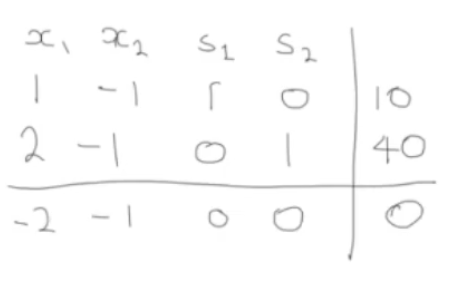 x₁ x₂ s₁ s₂
1 -1 1 0 10
2 -1 0 1 40
-2 -1 0 0 0